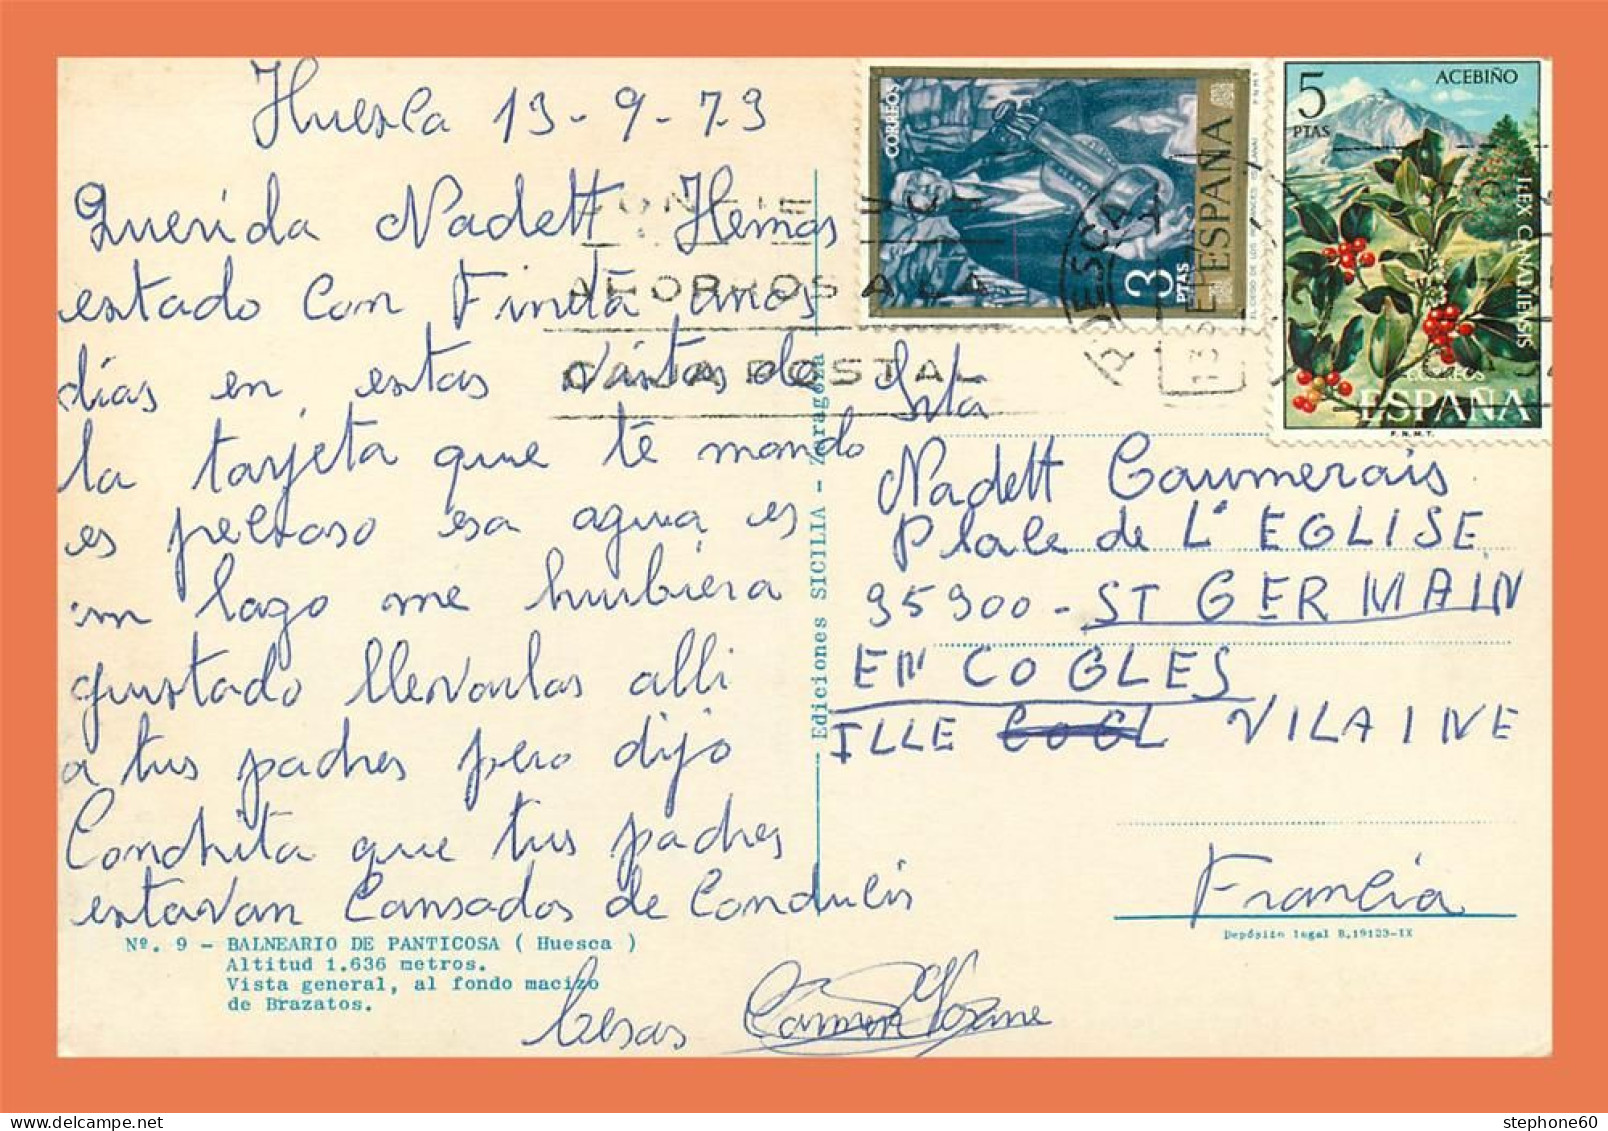 Huesca 13-9-73
Querida Nadett Hemos
estado Con Finita unos
días en estas vistas de
la tarjeta que te mando
es pelroso esa agua es
un lago me hubiera
gustado llevarlas alli
a tus padres pero dijo
Conchita que tus padres
estavan Cansados de Conducir
Nº. 9 - BALNEARIO DE PANTICOSA ( Huesca )
Altitud 1.636 metros.
Vista general, al fondo macizo
de Brazatos.
besos Carmen
Ediciones SICILIA - Zaragoza
CORREOS
3 PTAS
ESPAÑA
5 PTAS
ACEBIÑO
ILEX CANARIENSIS
CORREOS
ESPAÑA
F.N.M.T.
AHORROS A LA
CAJA POSTAL
HUESCA
Srta
Nadett Caumerais
Plale de L'EGLISE
35300 - ST GERMAIN
EN COGLES
ILLE COGL VILAINE
Francia
Depósito legal B.19123-IX
stephone60